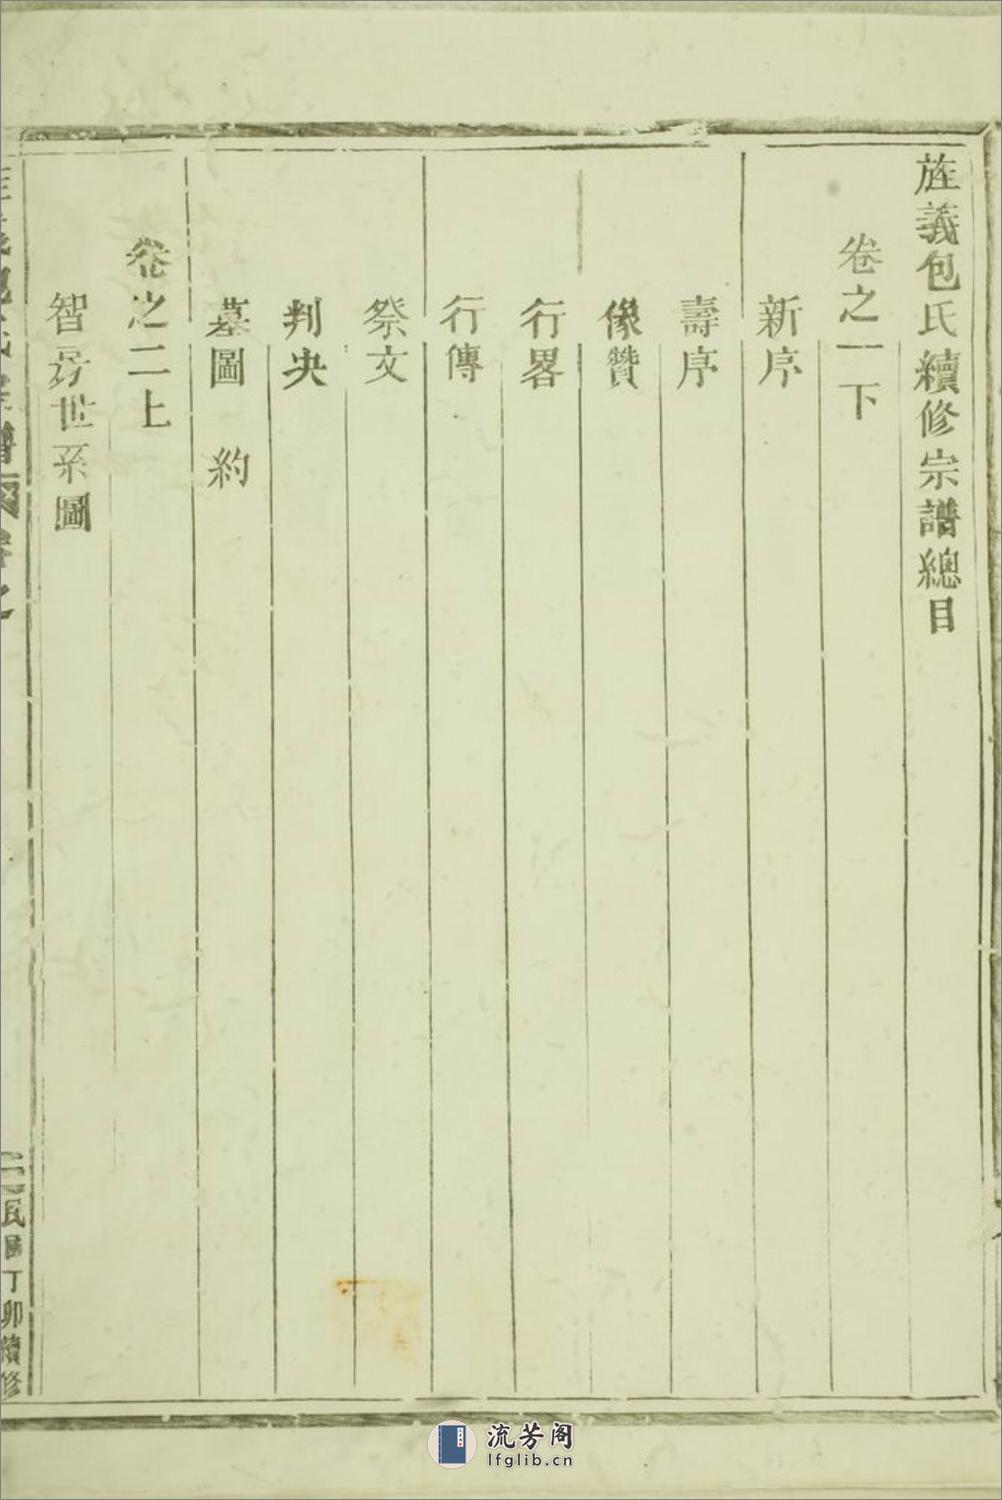 旌義包氏續修宗譜總目
卷之一下
新序
壽序
像贊
行畧
行傳
祭文
判央
墓圖 約
卷之二上
智房世系圖
民國丁卯續修
流芳阁
lfglib.cn